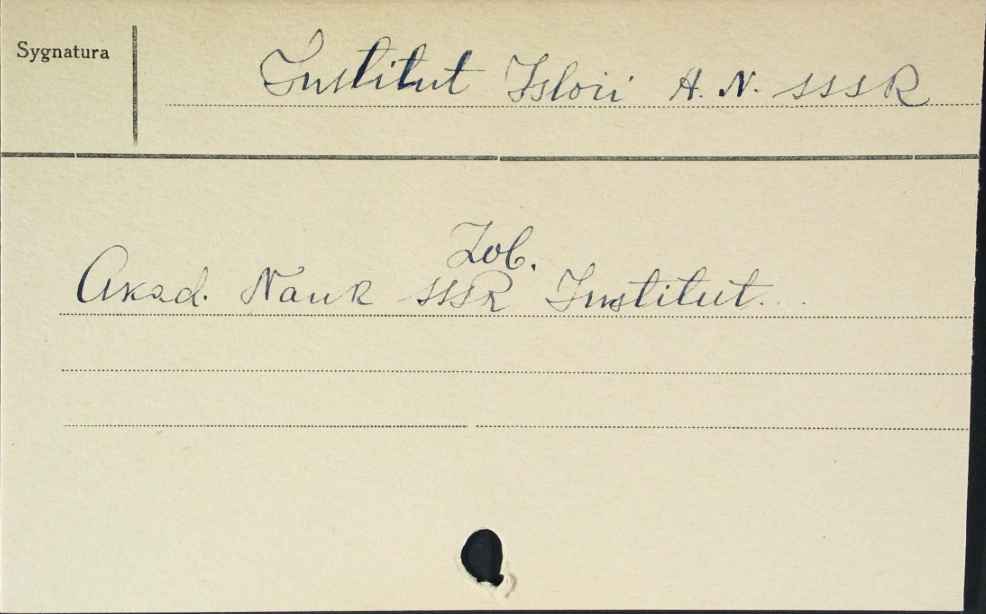 Sygnatura
Institut Istorii A. N. SSSR
Zob.
Akad. Nauk SSSR Institut...